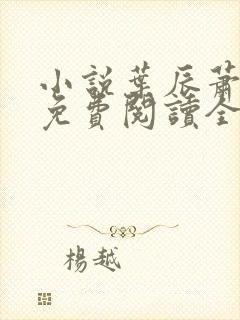 小說葉辰蕭
免費閱讀全
楊越